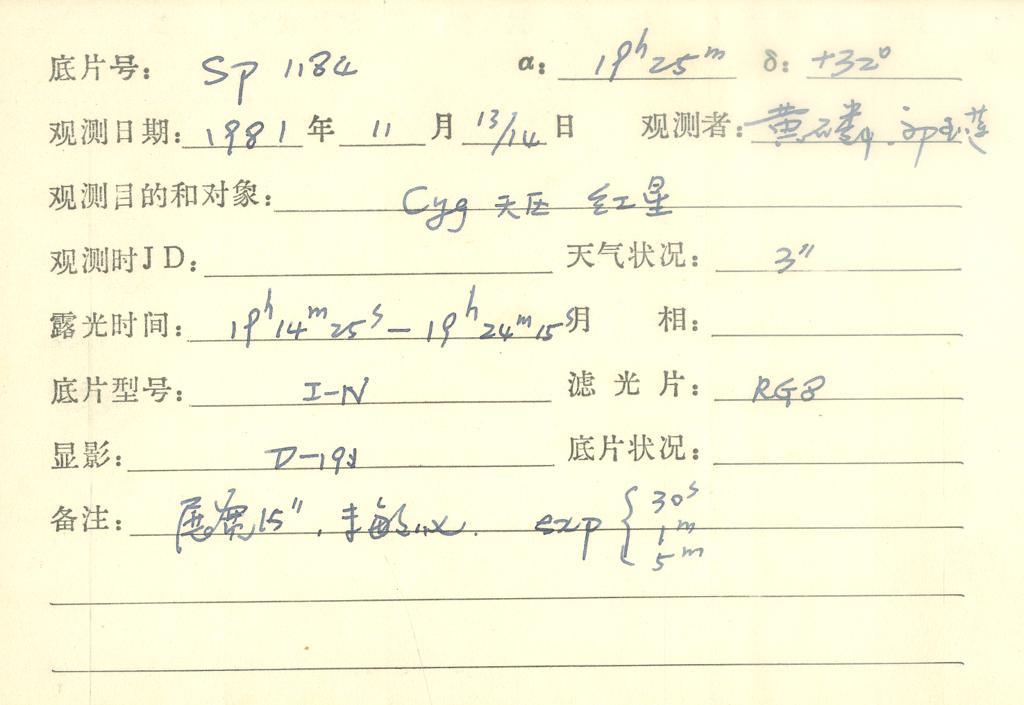 底片号: Sp 1184 α: 19ʰ25ᵐ δ: +32°
观测日期: 1981 年 11 月 13/14 日 观测者: 黄磷
观测目的和对象: Cyg 天区 红星
观测时JD: 天气状况: 3″
露光时间: 19ʰ14ᵐ25ˢ — 19ʰ24ᵐ15ˢ 月 相:
底片型号: I-N 滤光片: RG8
显影: D-19 底片状况:
备注: 展宽15″, exp { 30ˢ
1ᵐ
5ᵐ